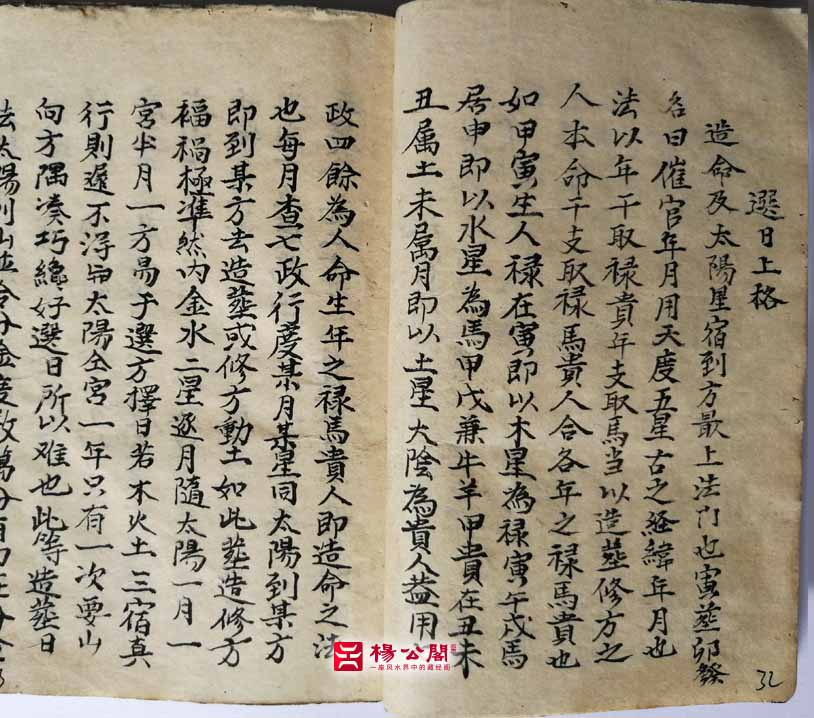 選日上格
造命及太陽星宿到方最上法门也寅塟卯發
名曰催官年月用天度五星古之经緯年月也
法以年干取禄貴年支取馬当以造塟修方之
人本命干支取禄馬貴人合各年之禄馬貴也
如甲寅生人禄在寅即以木星為禄寅午戌馬
居申即以水星為馬甲戊兼牛羊甲貴在丑未
丑属土未属月即以土星太陰為貴人盖用
政四餘為人命生年之禄馬貴人即造命之法
也每月查七政行度某月某星同太陽到某方
即到某方去造塟或修方動土如此塟造修方
福禍極準然内金水二星逐月隨太陽一月一
宮半月一方易于選方擇日若木火土三宿真
行則遲不得與太陽仝宮一年只有一次要山
向方隅凑巧纔好選日所以难也此等造塟日
去太陽到山並合分金度数
32
楊公閣
一座风水界中的藏经阁